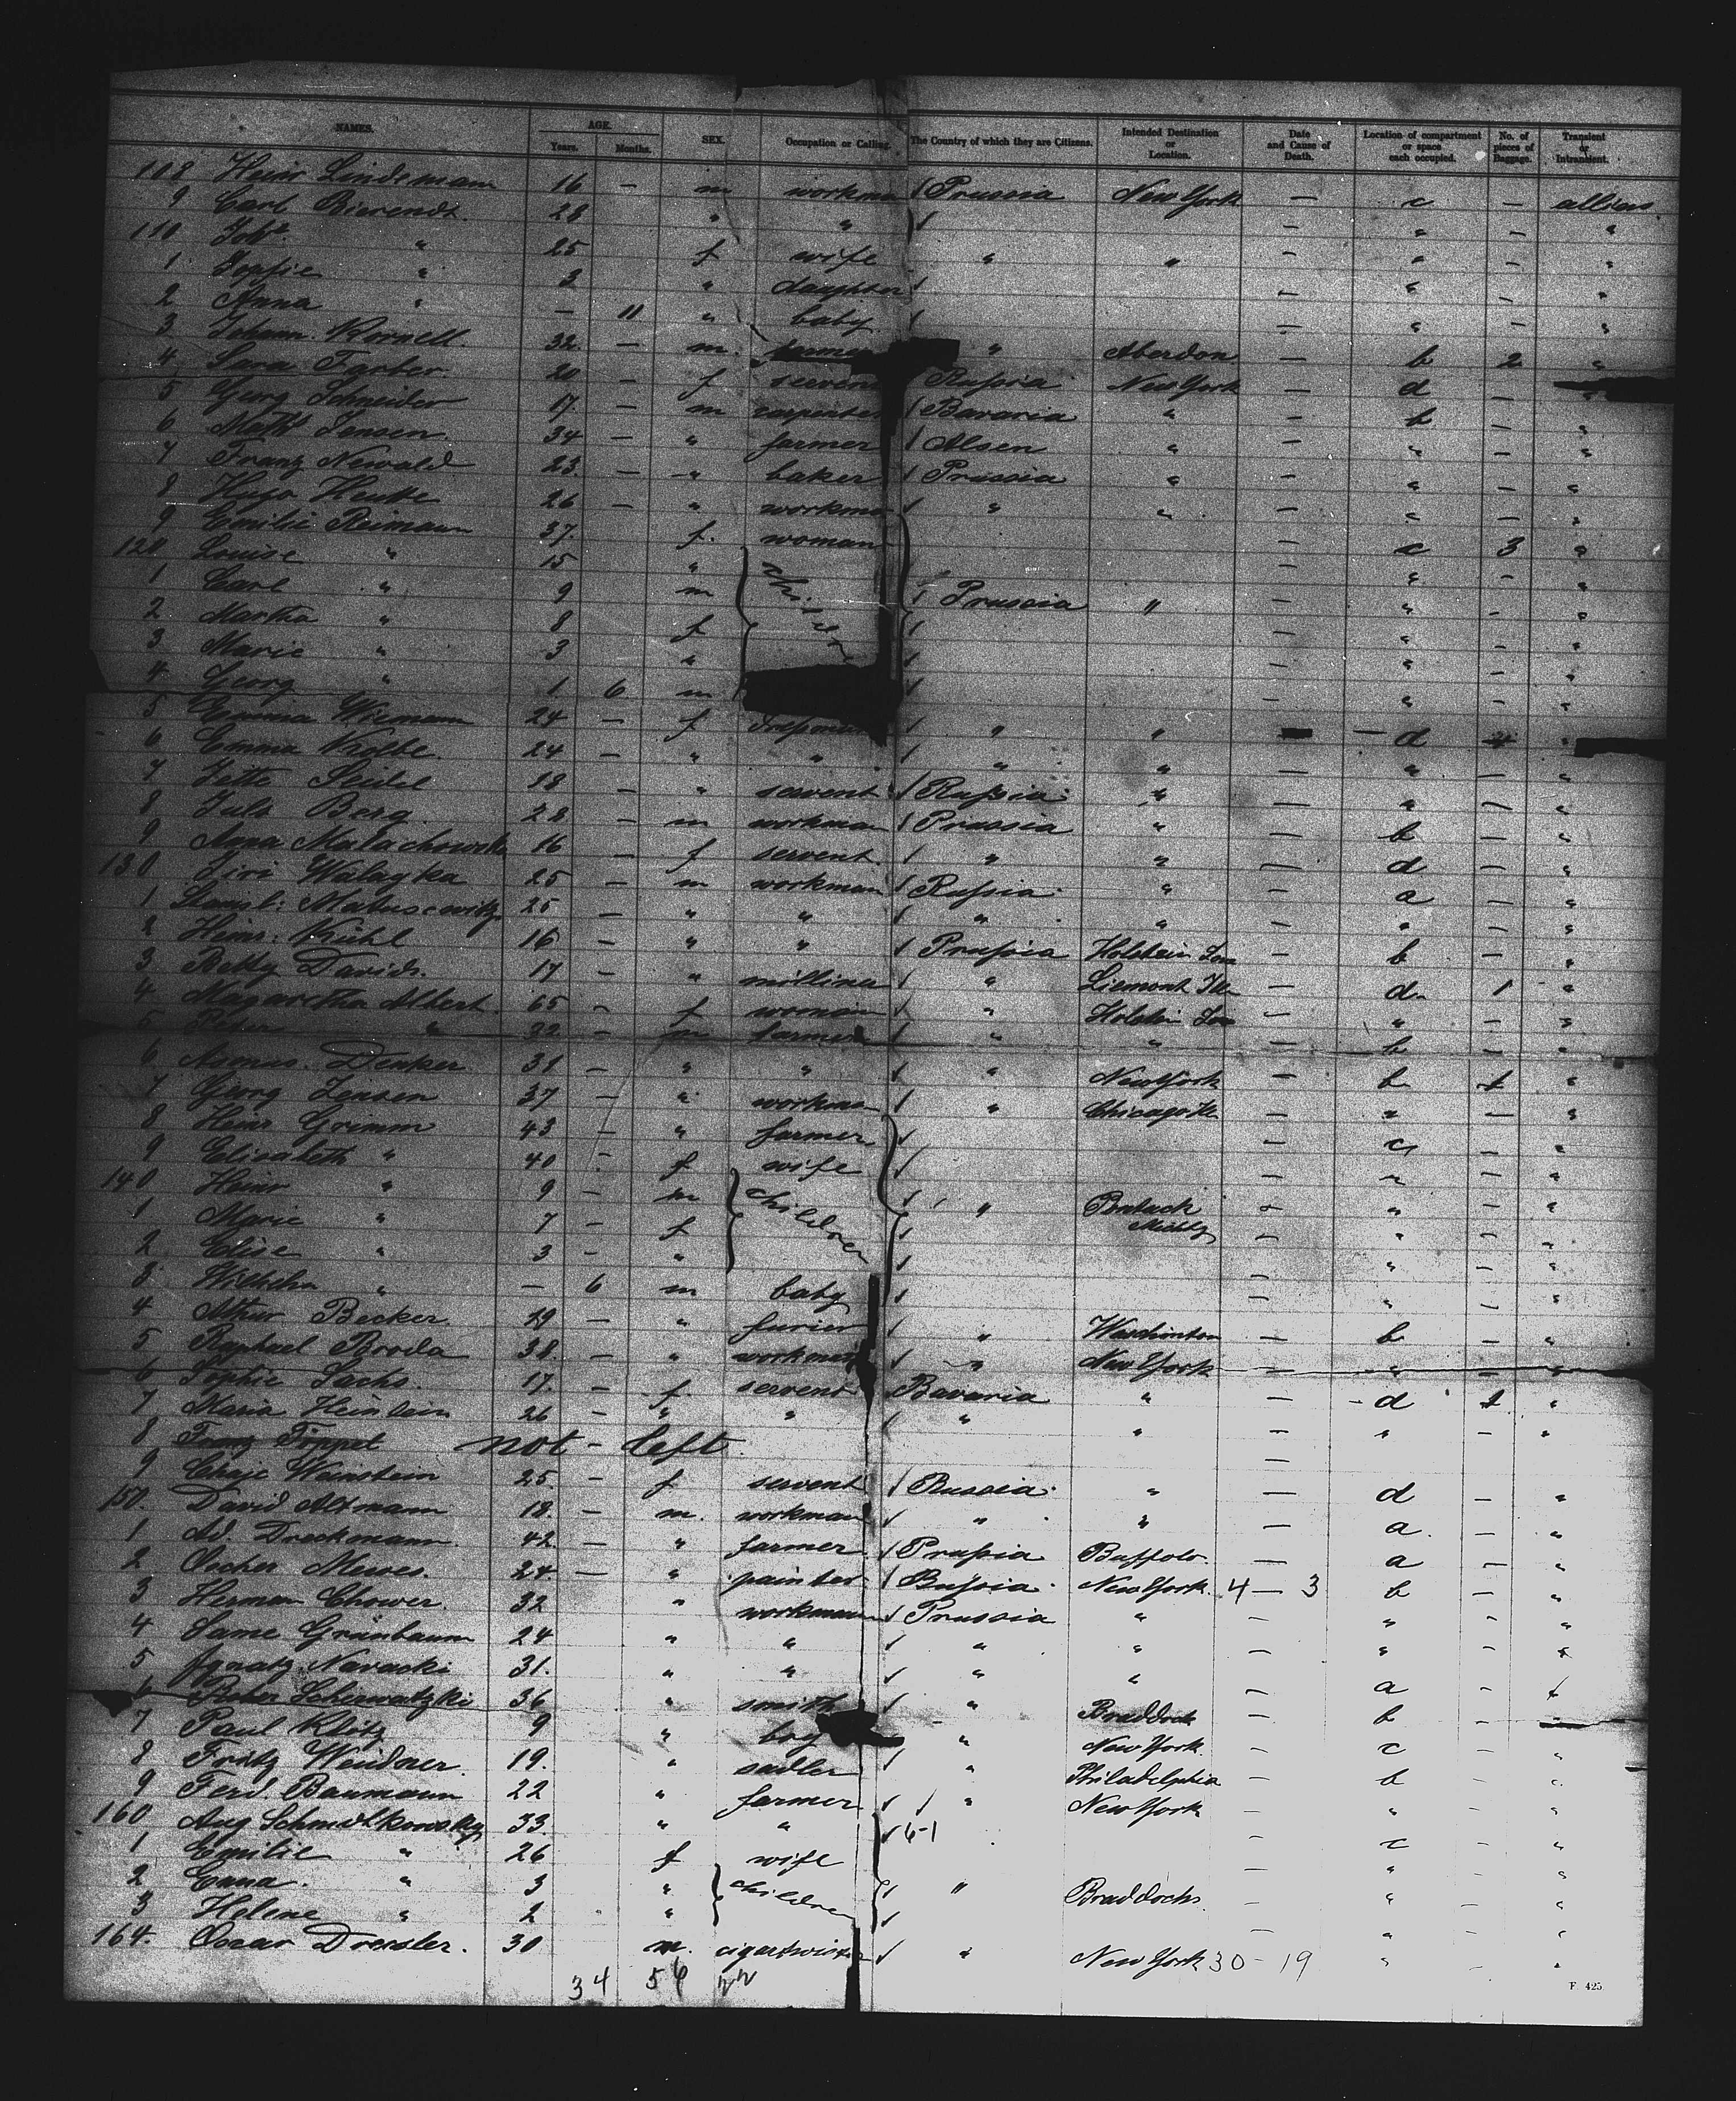 NAMES. AGE. Years. Months. SEX. Occupation or Calling. The Country of which they are Citizens. Intended Destination or Location. Date and Cause of Death. Location of compartment or space each occupied. No. of pieces of Baggage. Transient or Intransient.
108 Heinr Lindemann 16 — m workman Prussia New York — c —
9 Carl Bierendt 28 " " — " — "
110 Joh⁠ " 25 f wife " " — " — "
1 Sopfie " 3 " daughter — " — "
2 Anna " — 11 " baby — " — "
3 Johann Kornell 32 — m. farmer " Aberdon — b 2 "
4 Sara Farber 20 — f servent Russia New York — d —
5 Georg Schneider 17 — m carpenter Bavaria " — b — "
6 Math Jensen 34 — " farmer Alsen " — " — "
7 Franz Newald 23 — " baker Prussia " — " — "
8 Hugo 26 — " workman " " — " — "
9 Emilie Reimann 37 f. woman — c 3 "
120 Louise " 15 " — " — "
1 Carl " 9 m children Prussia " — " — "
2 Martha " 8 f — " — "
3 Marie " 3 " — " — "
4 Georg " 1 6 m — " — "
5 Emma Wiemann 24 — f " " — d "
6 Emma Kolbe 24 — " " " " — " — "
7 Jette Seidel 18 — " servent Russia " — " — "
8 Juls Berg 28 — m workman Prussia " — b — "
9 Anna Malachowska 16 — f servent " " — d — "
130 25 — m workman Russia " — a — "
1 Matuscewitz 25 — " " " " — " — "
2 Heinr. Kühl 16 — " " Prussia Holstein — b — "
3 Betty Davids 17 — " milliner " Liemont Ill — d 1 "
4 Magaretha Albert 65 — f woman " Holstein — " — "
5 Peter " 32 — m farmer " " — b — "
6 Asmus Denker 31 — " " " New York — b 1 "
7 Georg Jensen 37 — " workman " Chicago Ill — " — "
8 Heinr Grimm 43 — " farmer — c — "
9 Elisabeth " 40 — f wife — " — "
140 Heinr " 9 — m children " — " — "
1 Marie " 7 — f — " — "
2 Elise " 3 — " — " — "
3 Wilhelm " — 6 m baby — " — "
4 Athur Becker 29 — " furier " Waschinton — b — "
5 Raphael Broda 38 — " workman " New York — " — "
6 Sophie Sachs 17 — f. servent Bavaria " — d 1 "
7 Maria Heinlein 26 — " " " " — " — "
8 Franz Töppel not - left —
9 Chaje Weinstein 25 — f servent Russia " — d — "
150 David Altmann 18 — m. workman " " — a — "
1 Ad. Dreckmann 42 — " farmer Prussia Buffolo — a — "
2 Oscher 24 — " painter Russia New York 4 — 3 b — "
3 Herman Chower 32 " workman Prussia " — " — "
4 Same Grünbaum 24 " " " " — " —
5 Ignatz Navaski 31. " " " " — a —
6 Peter Scherwatzki 36 " smith " Braddock — b —
7 Paul Klotz 9 " boy " New York — c — "
8 Fritz Weidner 19. " sadler " Philadelphia — b — "
9 Ferd. Baumann 22 " farmer " New York — " — "
160 Aug Schmidtkowsky 33 " " 6-1 — c — "
1 Emilie " 26 f wife — " — "
2 Emma " 3 " children " Braddocks — " — "
3 Helene " 2 " — " — "
164 Oscar Dressler. 30 m. cigartwister " New York 30 - 19 " — "
34 56 22
F 425